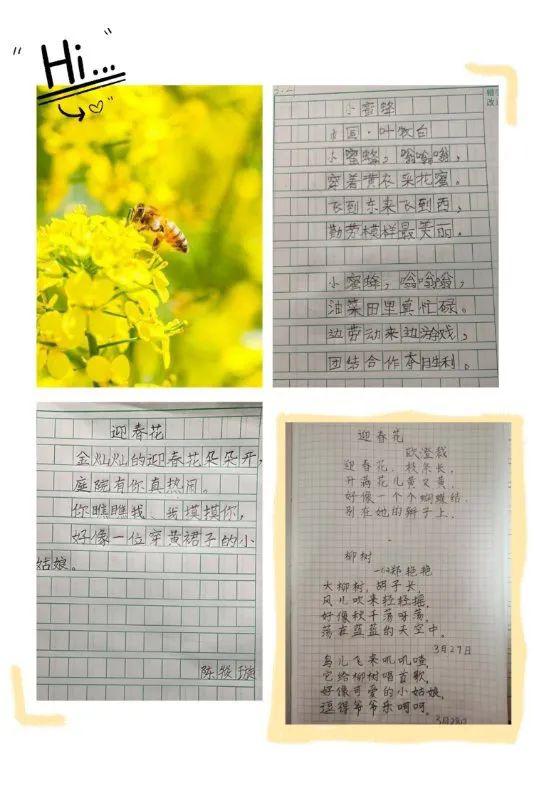 Hi...
小蜜蜂
小蜜蜂，嗡嗡嗡，
穿着黄衣采花蜜。
飞到东来飞到西，
勤劳模样最美丽。
小蜜蜂，嗡嗡嗡，
油菜田里真忙碌。
边劳动来边游戏，
团结合作夺胜利。
迎春花
金灿灿的迎春花朵朵开，
庭院有你真热闹。
你瞧瞧我、我摸摸你，
好像一位穿黄裙子的小
姑娘。
陈筱
迎春花
欧澄裁
迎春花，枝条长，
开满花儿黄又黄，
好像一个个蝴蝶结，
别在她的辫子上。
柳树
郑艳艳
大柳树，胡子长，
风儿吹来轻轻摇，
好像秋千荡呀荡，
荡在蓝蓝的天空中。
3月27日
鸟儿飞来叽叽喳，
它给柳树唱首歌，
好像可爱的小姑娘，
逗得爷爷乐呵呵。
3月28日